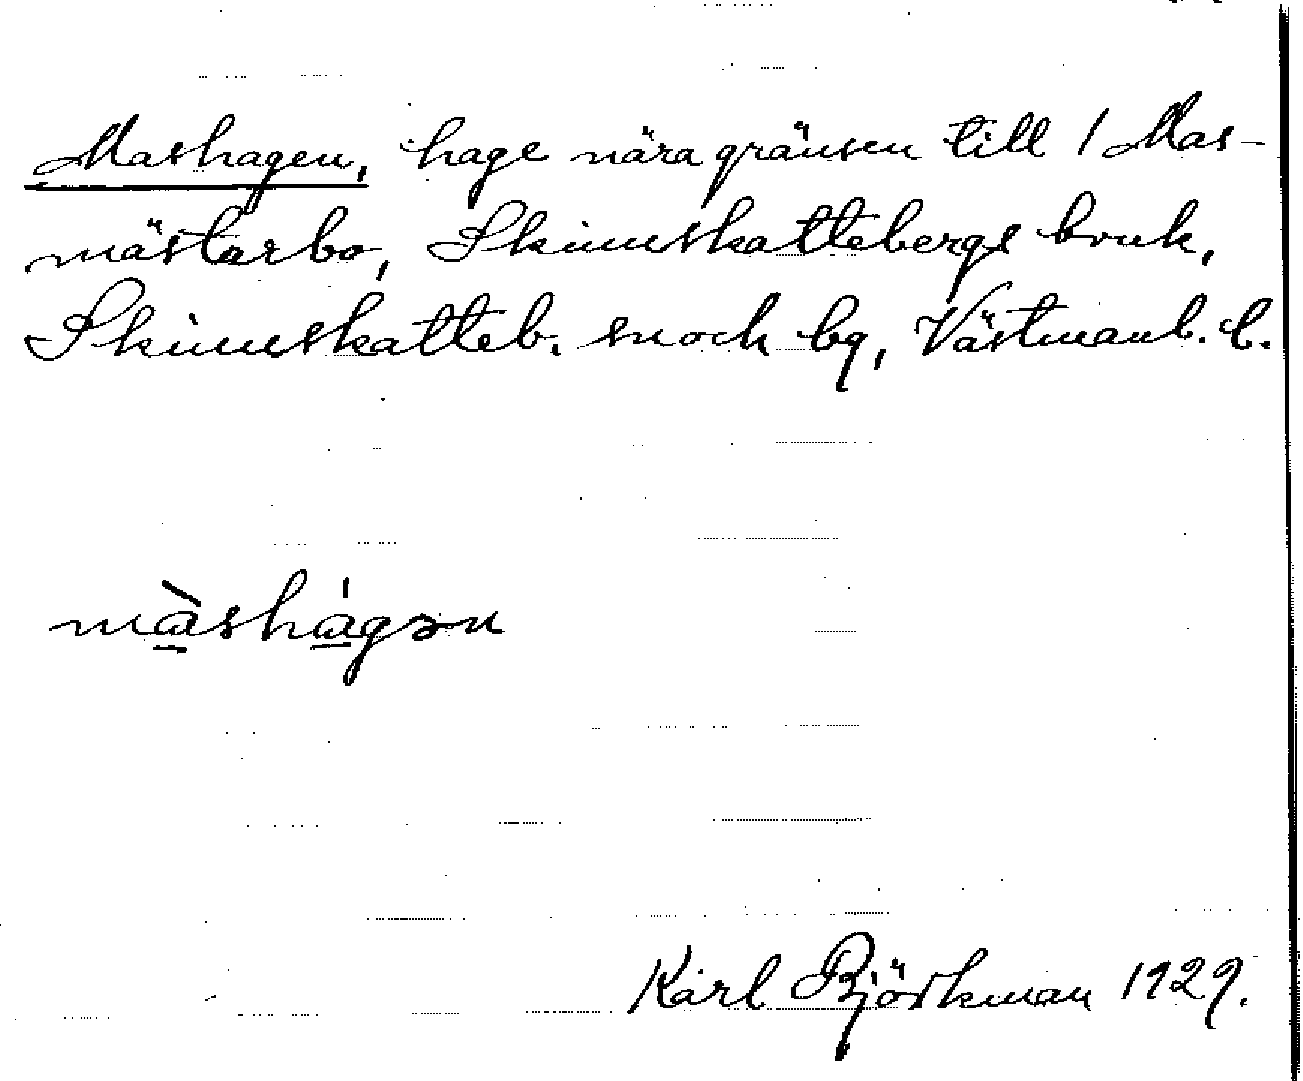 Mashagen, hage nära gränsen till 1 Mas-
mästarbo, Skinnskattebergs bruk,
Skinnskatteb. snoch bg, Västmanl. l.
màshágən
Karl Björkman 1929.